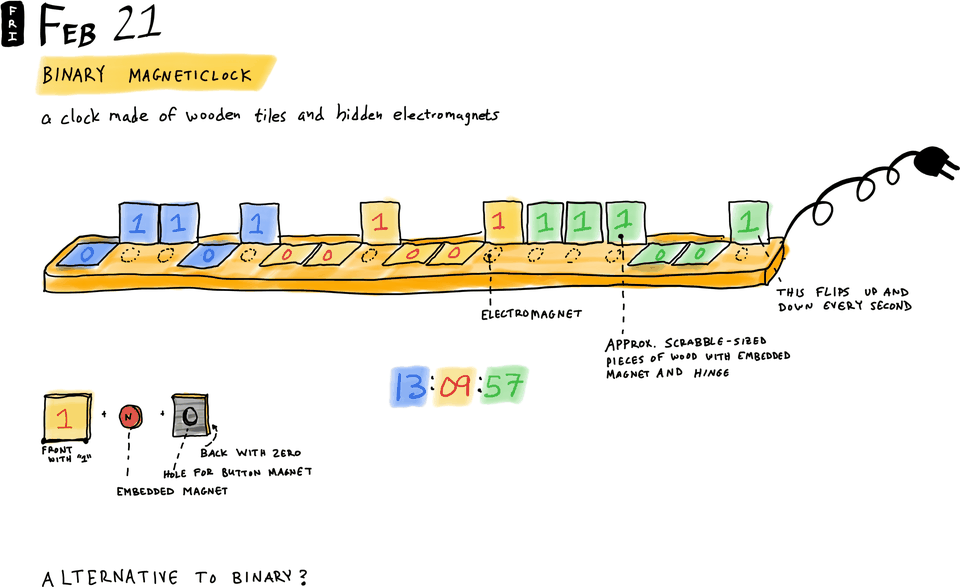 FRI
FEB 21
BINARY MAGNETICLOCK
a clock made of wooden tiles and hidden electromagnets
0 1 1 0 1 0 0 1 0 0 1 1 1 1 0 0 1
ELECTROMAGNET
THIS FLIPS UP AND
DOWN EVERY SECOND
APPROX. SCRABBLE-SIZED
PIECES OF WOOD WITH EMBEDDED
MAGNET AND HINGE
13:09:57
1 + N + 0
FRONT
WITH "1"
BACK WITH ZERO
HOLE FOR BUTTON MAGNET
EMBEDDED MAGNET
ALTERNATIVE TO BINARY?